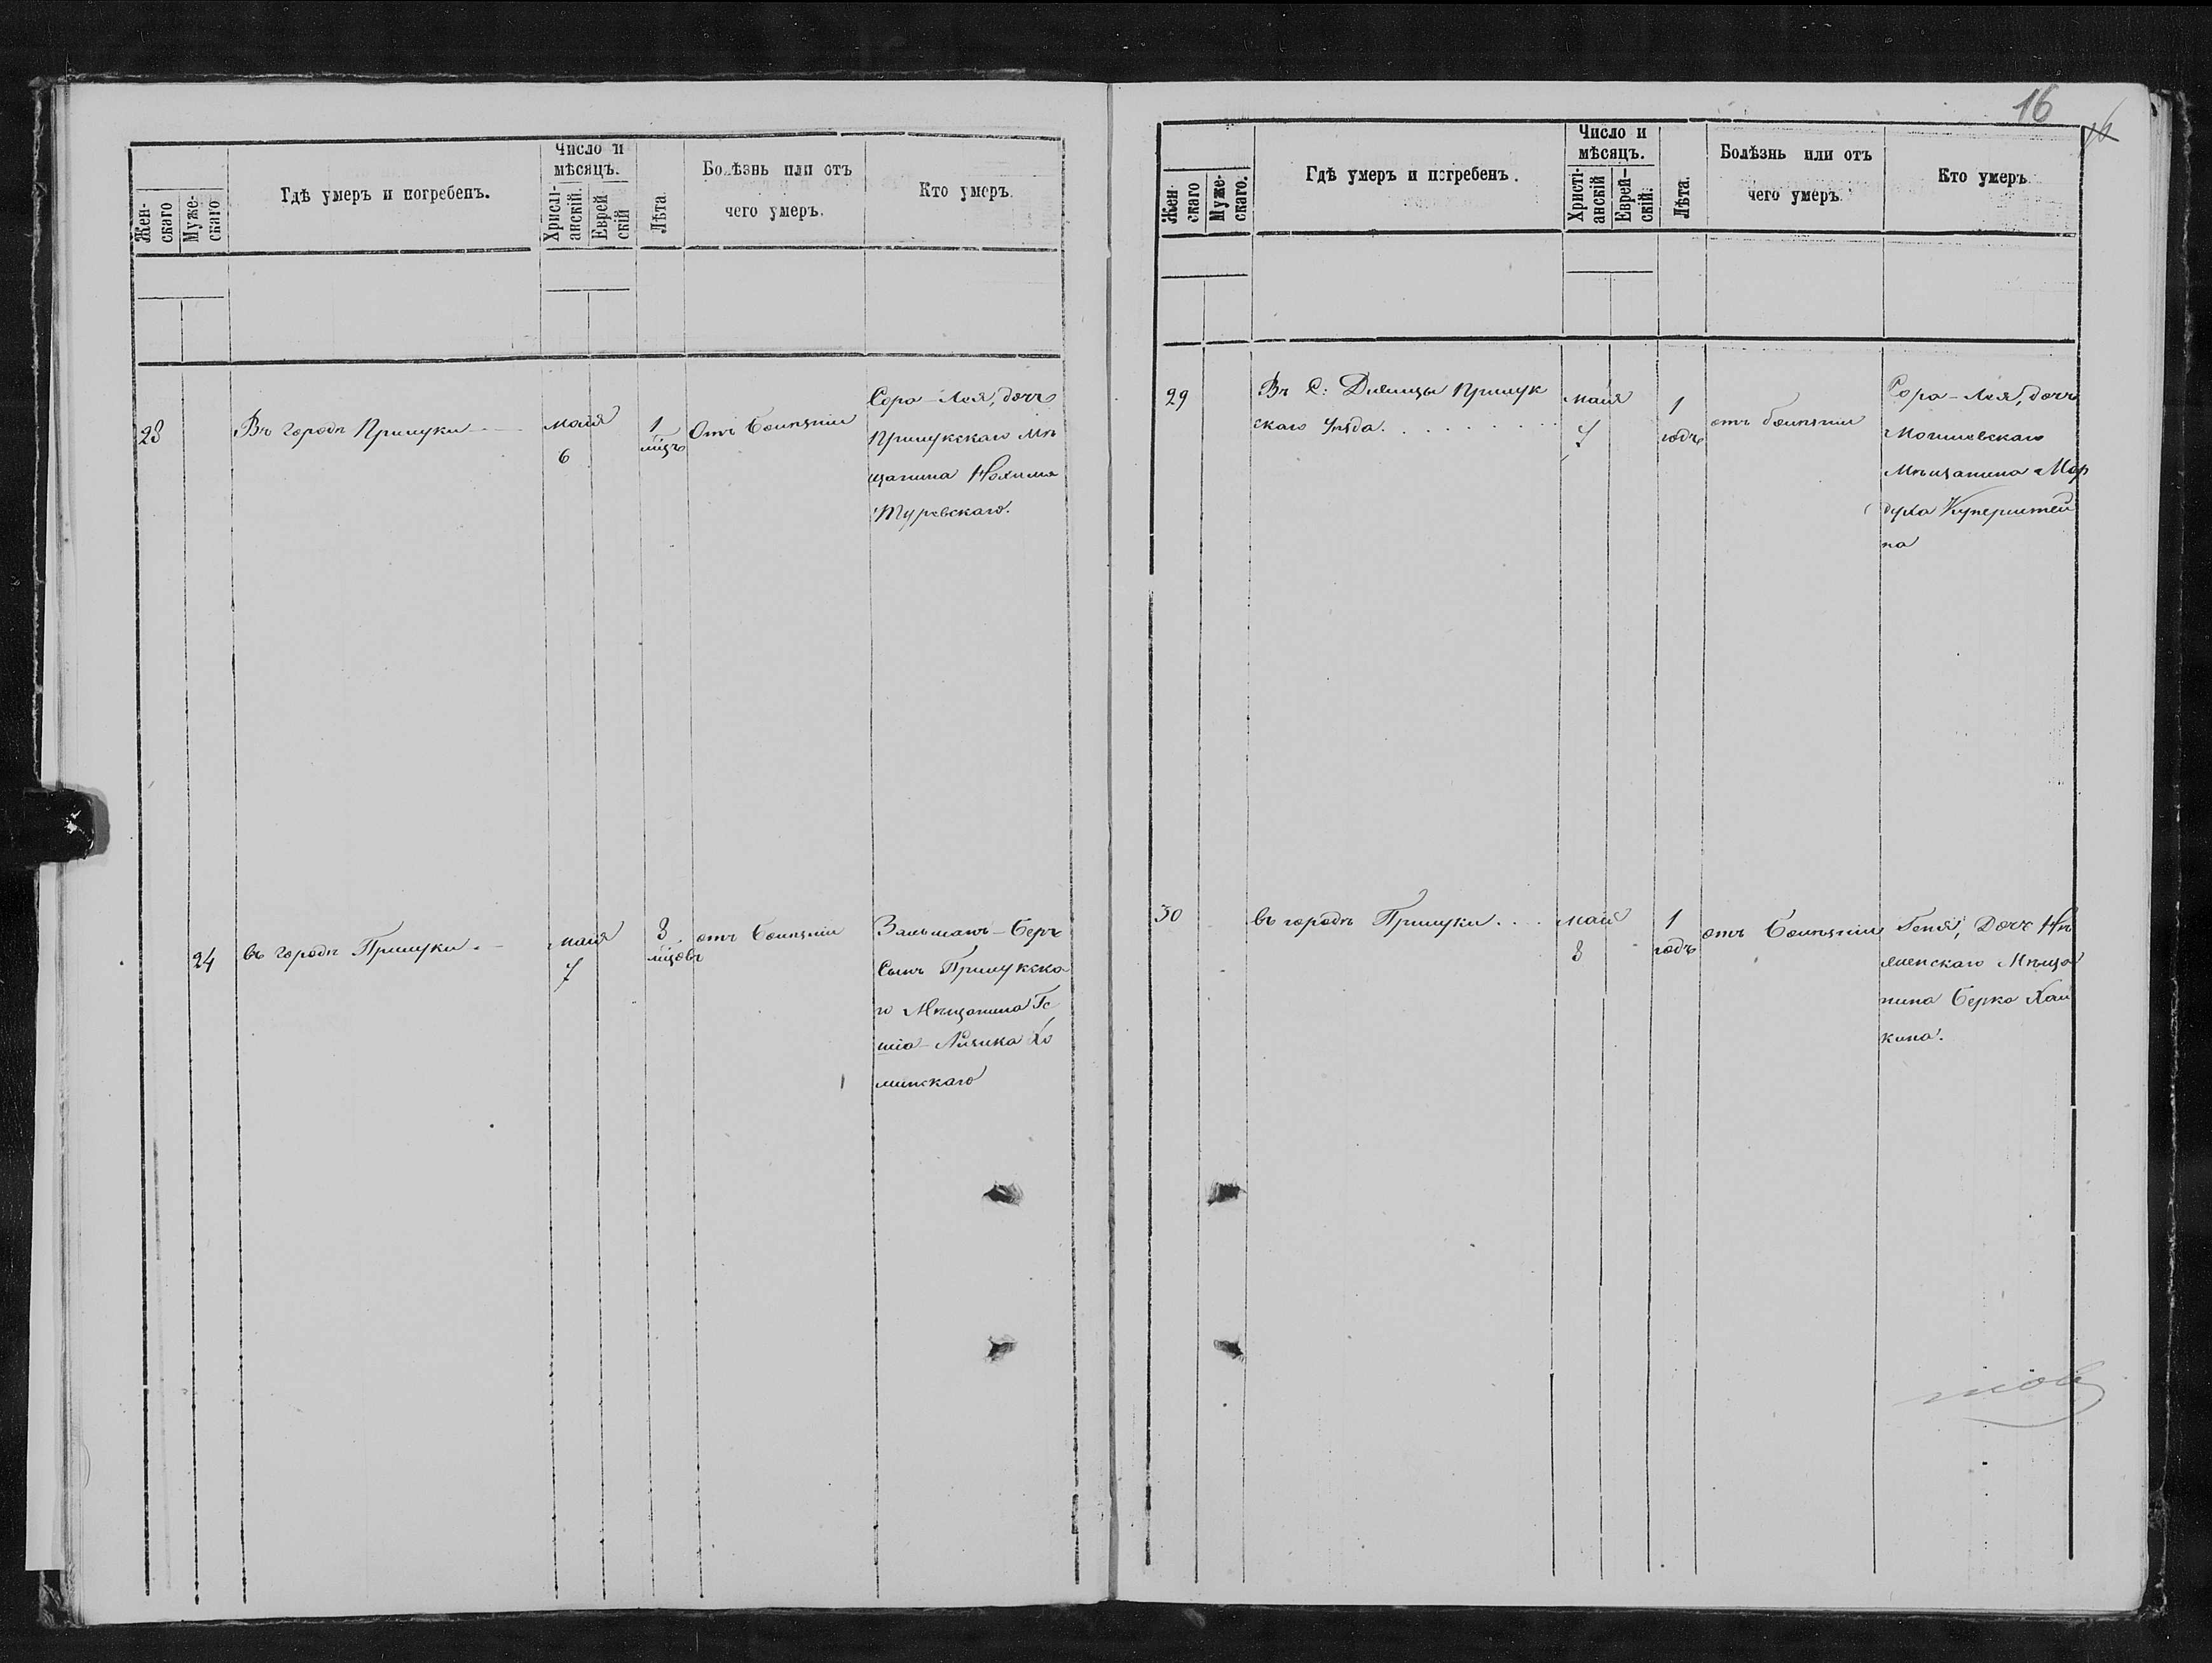 Жен-
скаго
Муже-
скаго
Гдѣ умеръ и погребенъ.
Число и
мѣсяцъ.
Христі-
анскій.
Еврей
скій
Лѣта
Болѣзнь или отъ
чего умеръ.
Кто умеръ.
28
Въ городѣ Прилуки
мая
6
1
мѣцъ
Отъ болѣзни
Сора-Лея, дочь
Прилукскаго Мѣ
щанина Нохима
Туревскаго.
24
въ городѣ Прилуки.
мая
7
3
мѣцовъ
отъ болѣзни
Зальманъ-Беръ
Сынъ Прилукска
го Мѣщанина
минскаго
16
16
Жен-
скаго
Муже-
скаго.
Гдѣ умеръ и погребенъ.
Число и
мѣсяцъ.
Христі-
анскій
Еврей-
скій.
Лѣта.
Болѣзнь или отъ
чего умеръ
Кто умеръ
29
Въ С: Дѣвицы Прилук
скаго Уѣзда.
мая
7
1
годъ
отъ болѣзни
Сора-Лея, дочь
Могилевскаго
Мѣщанина Мор
духа Куперштей
на
30
въ городѣ Прилуки
мая
8
1
годъ
отъ болѣзни
Геня, Дочь Нѣ
жинскаго Мѣща
нина Берка Хай
кина.